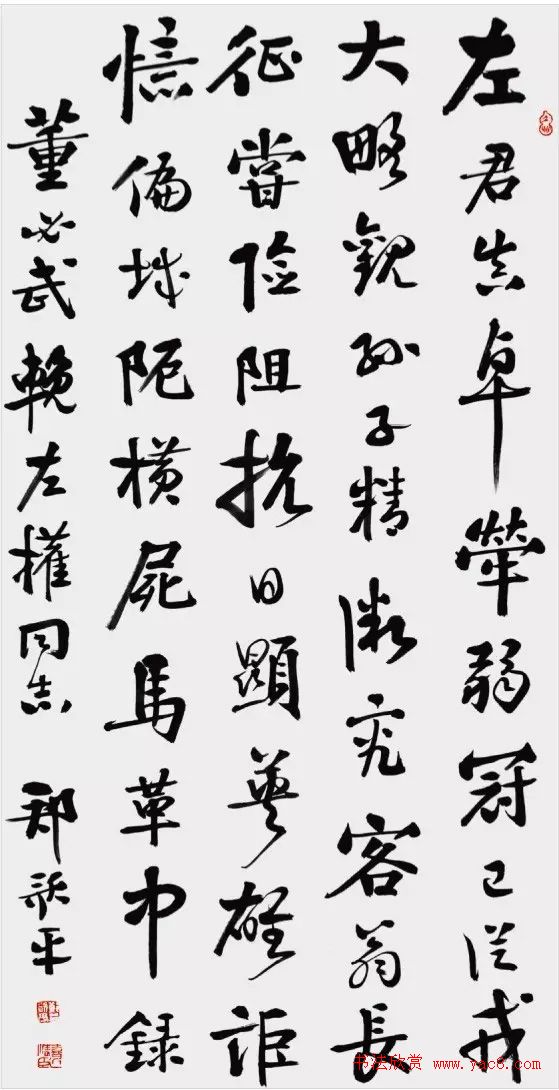 左君真卓犖弱冠已從戎
大略觀孙子精微究客翁長
征嘗险阻抗日顯英雄詎
憶偏城陌横屍馬革中録
董必武輓左權同志 郑平
书法欣赏 www.yac8.com